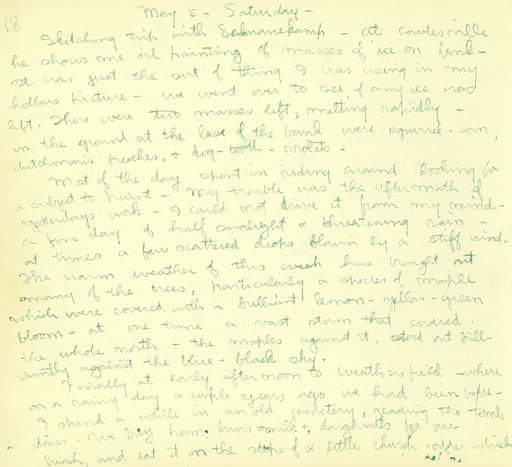 18
May 5 - Saturday -
Sketching trip with Schwanekamp - at Cowlesville
he shows one oil painting of masses of ice on bank -
it was just the sort of thing I was using in my
hollows picture - we went over to see if any ice was
left. There were two masses left, melting rapidly -
in the ground at the base of the bank were squirrel-corn,
dutchman's breeches, & dog-tooth-violets -
Most of the day spent in riding around looking for
a subject to paint - My trouble was the aftermath of
yesterdays work - I could not drive it from my mind -
a fine day of half sunlight & threatening rain -
at times a few scattered drops blown by a stiff wind.
The warm weather of this week has brought out
many of the trees, particularly a species of maple
which were covered with a brilliant lemon-yellow-green
bloom - at one time a vast storm that covered
the whole north - the maples against it, stood out brill-
iantly against the blue-black sky.
Finally at early afternoon to Weathersfield - where
on a rainy day a couple years ago we had been before -
I spend a while in an old cemetery, reading the tomb
stones. We buy ham, buns & milk & doughnuts for our
lunch, and eat it on the steps of a little church - after which